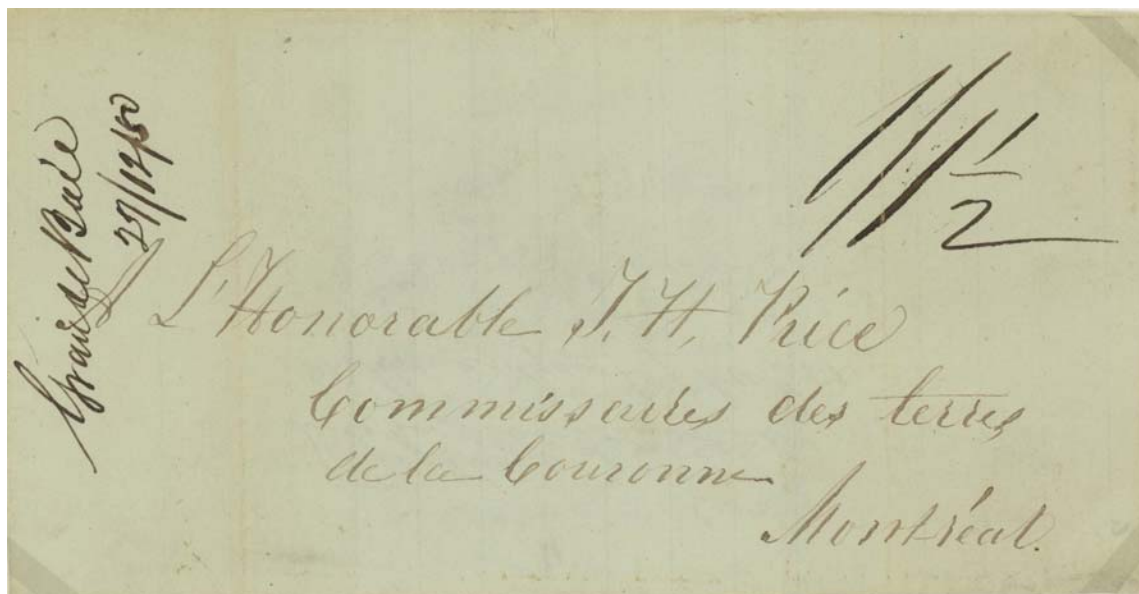 Grande Baie
27/12/50
11 1/2
L'Honorable J. H. Price
Commissaires des terres
de la Couronne
Montréal.